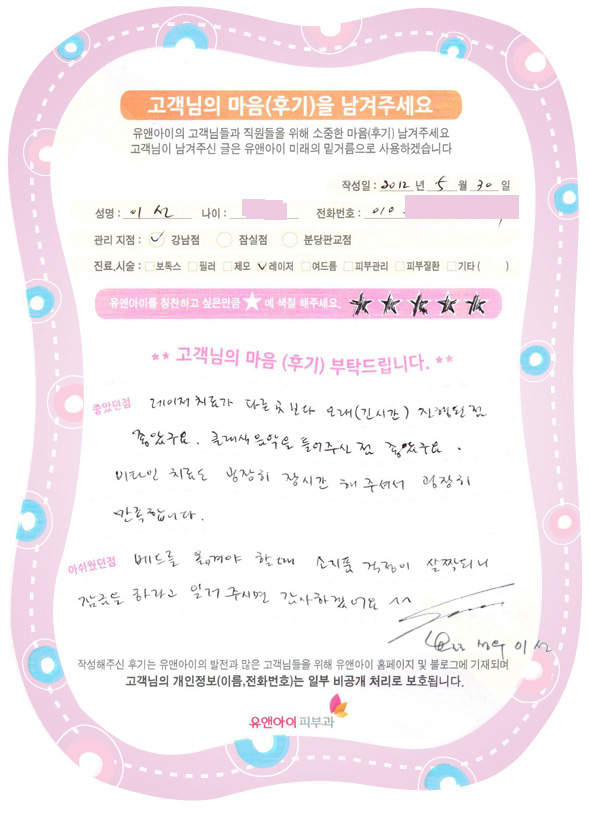 고객님의 마음(후기)을 남겨주세요
유앤아이의 고객님들과 직원들을 위해 소중한 마음(후기) 남겨주세요
고객님이 남겨주신 글은 유앤아이 미래의 밑거름으로 사용하겠습니다
작성일 : 2012 년 5 월 30 일
성명 : 이 선 나이 : 전화번호 : 010
관리 지점 : 강남점 잠실점 분당판교점
진료,시술 : 보톡스 필러 제모 레이저 여드름 피부관리 피부질환 기타 ( )
유앤아이를 칭찬하고 싶은만큼 ★ 에 색칠 해주세요. ★★★★★
** 고객님의 마음 (후기) 부탁드립니다. **
좋았던점 레이저 치료가 다른 곳보다 오래(긴시간) 진행된 점
좋았구요. 클래식 음악을 틀어주신 점 좋았구요.
비타민 치료도 굉장히 장시간 해 주셔서 굉장히
만족합니다.
아쉬웠던점 베드를 옮겨야 할때 소지품 걱정이 살짝되니
잠금을 하라고 일러 주시면 감사하겠어요 ^^
이 선
작성해주신 후기는 유앤아이의 발전과 많은 고객님들을 위해 유앤아이 홈페이지 및 블로그에 기재되며
고객님의 개인정보(이름,전화번호)는 일부 비공개 처리로 보호됩니다.
유앤아이 피부과